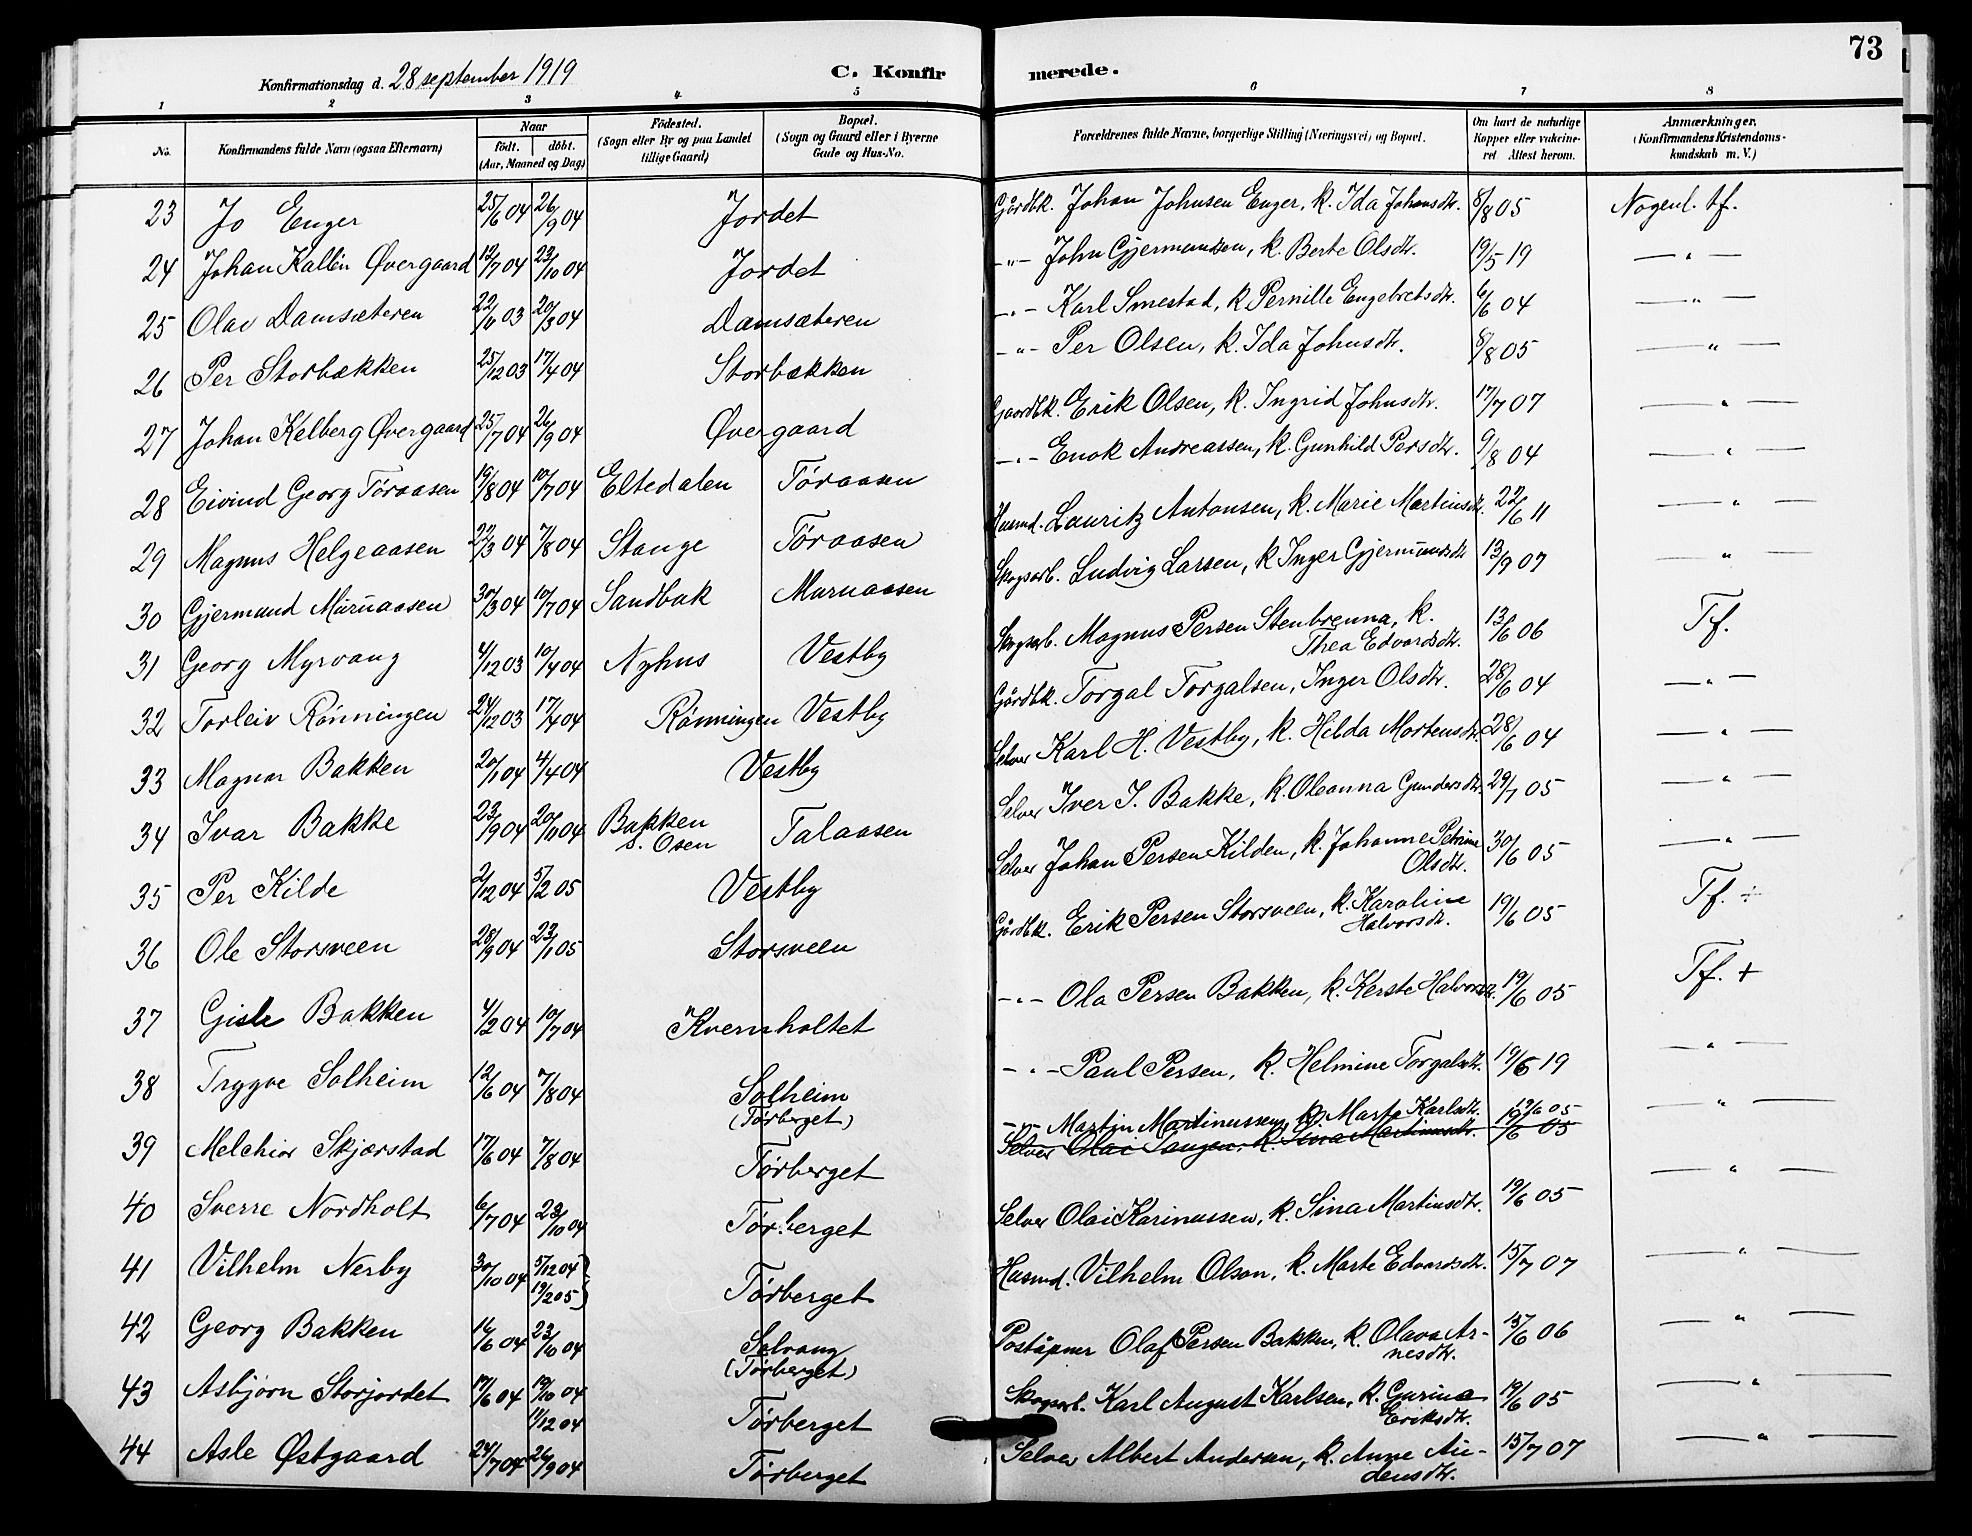 73
Konfirmationsdag d. 28 september 1919
C. Konfirmerede.
1 2 3 4 5 6 7 8
No. | Konfirmandens fulde Navn (ogsaa Efternavn) | Naar født. døbt. (Aar, Maaned og Dag) | Fødested. (Sogn eller By og paa Landet tillige Gaard) | Bopæl. (Sogn og Gaard eller i Byerne Gade og Hus-No. | Forældrenes fulde Navne, borgerlige Stilling (Næringsvei) og Bopæl. | Om havt de naturlige Kopper eller vakcineret Attest herom. | Anmærkninger. (Konfirmandens Kristendomskundskab m. V.)
23 Jo Enger 25/6 04 26/9 04 Jordet Gårdbk. Johan Johnsen Enger, k. Ida Johansdtr. 8/8 05 Nogenl. tf.
24 Johan Kallin Øvergaard 12/7 04 23/10 04 Jordet -"- John Gjermundsen, k. Berte Olsdtr. 19/5 19 — " —
25 Olav Damsæteren 22/11 03 20/3 04 Damsæteren -"- Karl Smestad, k Pernille Engebretsdtr. 6/6 04 — " —
26 Per Storbækken 25/12 03 17/4 04 Storbækken -"- Per Olsen, k. Ida Johnsdtr. 8/8 05 — " —
27 Johan Kelberg Øvergaard 25/7 04 26/9 04 Øvergaard Gaardbk. Erik Olsen, k. Ingrid Johnsdtr. 17/7 07 — " —
28 Eivind Georg Tøraasen 19/8 04 10/7 04 Eltedalen Tøraasen -"- Enok Andreassen, k. Gunhild Persdtr. 9/8 04 — " —
29 Magnus Helgeaasen 22/3 04 7/8 04 Stange Tøraasen Husmd. Lauritz Antonsen, k. Marie Martinsdtr. 22/6 11 — " —
30 Gjermund Muruaasen 30/3 04 10/7 04 Sandbak Muruaasen Skogsarb. Ludvig Larsen, k Inger Gjermundsdtr 13/9 07 — " —
31 Georg Myrvang 4/12 03 10/4 04 Nyhus Vestby Skogsarb. Magnus Persen Stenbrenna, k. Thea Edvardsdtr. 13/6 06 Tf.
32 Torleiv Rønningen 24/12 03 17/4 04 Rønningen Vestby Gårdbk. Torgal Torgalsen, Inger Olsdtr. 28/6 04 — " —
33 Magnar Bakken 20/1 04 4/4 04 Vestby Selver Karl H. Vestby, k. Hilda Mortensdtr. 28/6 04 — " —
34 Ivar Bakke 23/9 04 20/11 04 Bakken s. Osen Talaasen Selver Iver I. Bakke, k. Oleanna Gundersdtr. 29/7 05 — " —
35 Per Kilde 2/12 04 5/2 05 Vestby Selver Johan Persen Kilden, k. Johanne Petrine Olsdtr. 30/6 05 — " —
36 Ole Storsveen 28/9 04 23/1 05 Storsveen Gårdbk. Erik Persen Storsveen, k. Karoline Halvorsdtr. 19/6 05 Tf. ÷
37 Gisle Bakken 4/2 04 10/7 04 Kvernholtet -"- Ola Persen Bakken, k. Kerste Halvorsdtr. 19/6 05 Tf. +
38 Trygve Solheim 12/6 04 7/8 04 Solheim (Tørberget) -"- Paul Persen, k. Helmine Torgalsdtr. 19/5 19 — " —
39 Melchior Skjærstad 17/6 04 7/8 04 Tørberget -"- Martin Martinussen, k. Marte Karlsdtr. 19/6 05 — " —
Selver Olai Tangen, k. Sina Martinusdtr. 19/6 05
40 Sverre Nordholt 6/7 04 23/10 04 Tørberget Selver Olai Karinussen, k. Sina Martinsdtr. 19/6 05 — " —
41 Vilhelm Nerby 30/10 04 5/12 04 19/2 05 Tørberget Husmd. Vilhelm Olson, k. Marte Edvardsdtr. 15/7 07 — " —
42 Georg Bakken 16/6 04 23/10 04 Solvang (Tørberget) Poståpner Olaf Persen Bakken, k. Olava Arnesdtr. 15/6 06 — " —
43 Asbjørn Storjordet 17/6 04 19/10 04 11/12 04 Tørberget Skogsarb. Karl August Karlsen, k. Gurina Eriksdtr. 19/6 05 — " —
44 Asle Østgaard 24/7 04 26/9 04 Tørberget Selver Albert Andersen, k. Anne Audensdtr. 15/7 07 — " —